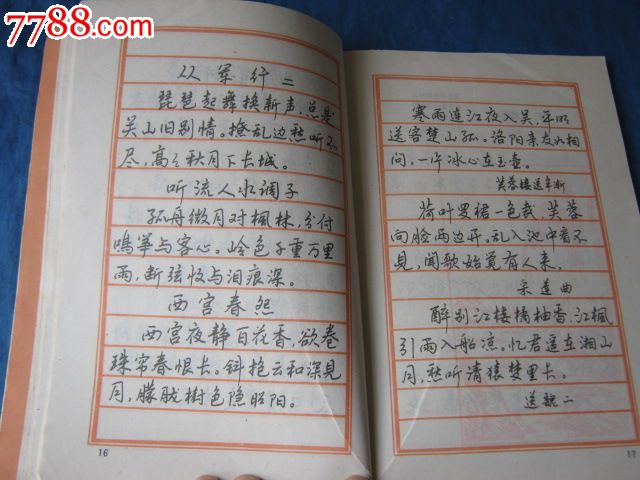 7788.com
从军行二
琵琶起舞换新声,总是
关山旧别情。撩乱边愁听不
尽,高高秋月下长城。
听流人水调子
孤舟微月对楓林,分付
鳴筝与客心。岭色千重万里
雨,断弦收与泪痕深。
西宫春怨
西宫夜静百花香,欲卷
珠帘春恨长。斜抱云和深見
月,朦胧樹色隐昭阳。
16
寒雨连江夜入吴,平明
送客楚山孤。洛阳亲友如相
问,一片冰心在玉壶。
芙蓉楼送辛渐
荷叶罗裙一色裁,芙蓉
向脸两边开。乱入池中看不
見,闻歌始觉有人来。
采莲曲
醉别江楼橘柚香,江楓
引雨入船凉。忆君遥在湘山
月,愁听清猿梦里长。
送魏二
17